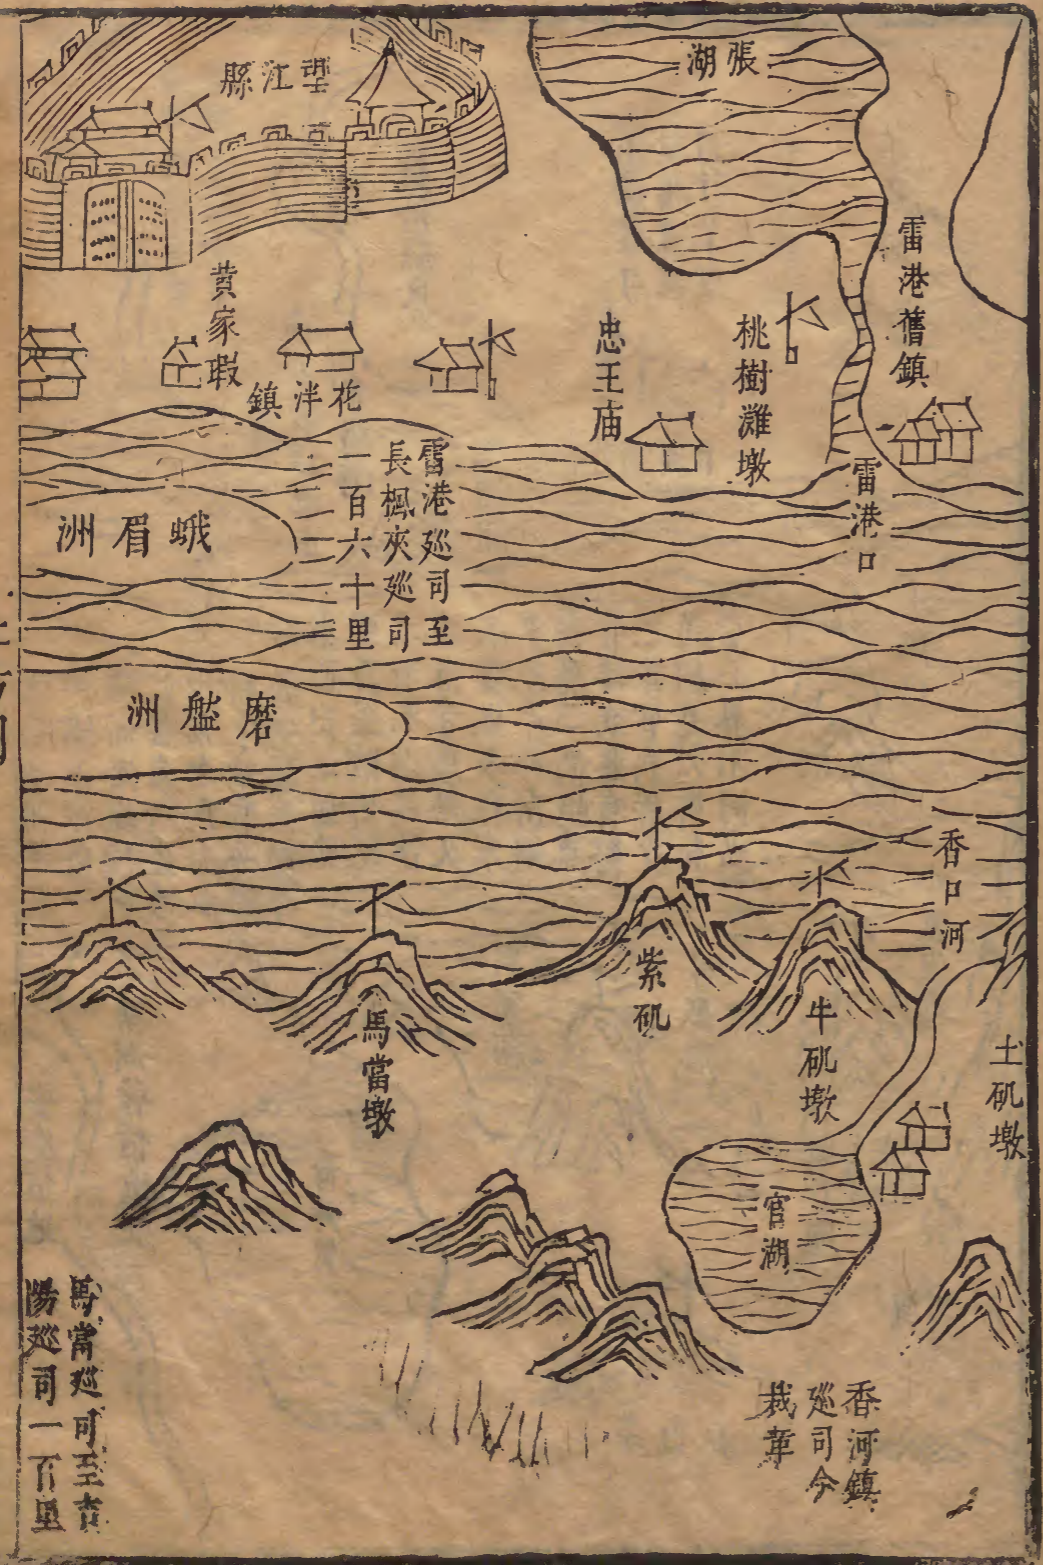 張湖
望江縣
雷港舊鎮
桃樹灘墩
忠王庙
黄家瑕
花泮鎮
雷港口
雷港廵司至
長楓夾廵司
一百六十里
蛾眉洲
磨艦洲
香口河
紫矶
牛矶墩
土矶墩
馬當墩
官湖
香河鎮
廵司今
裁革
馬當廵司至吉
陽廵司一百里